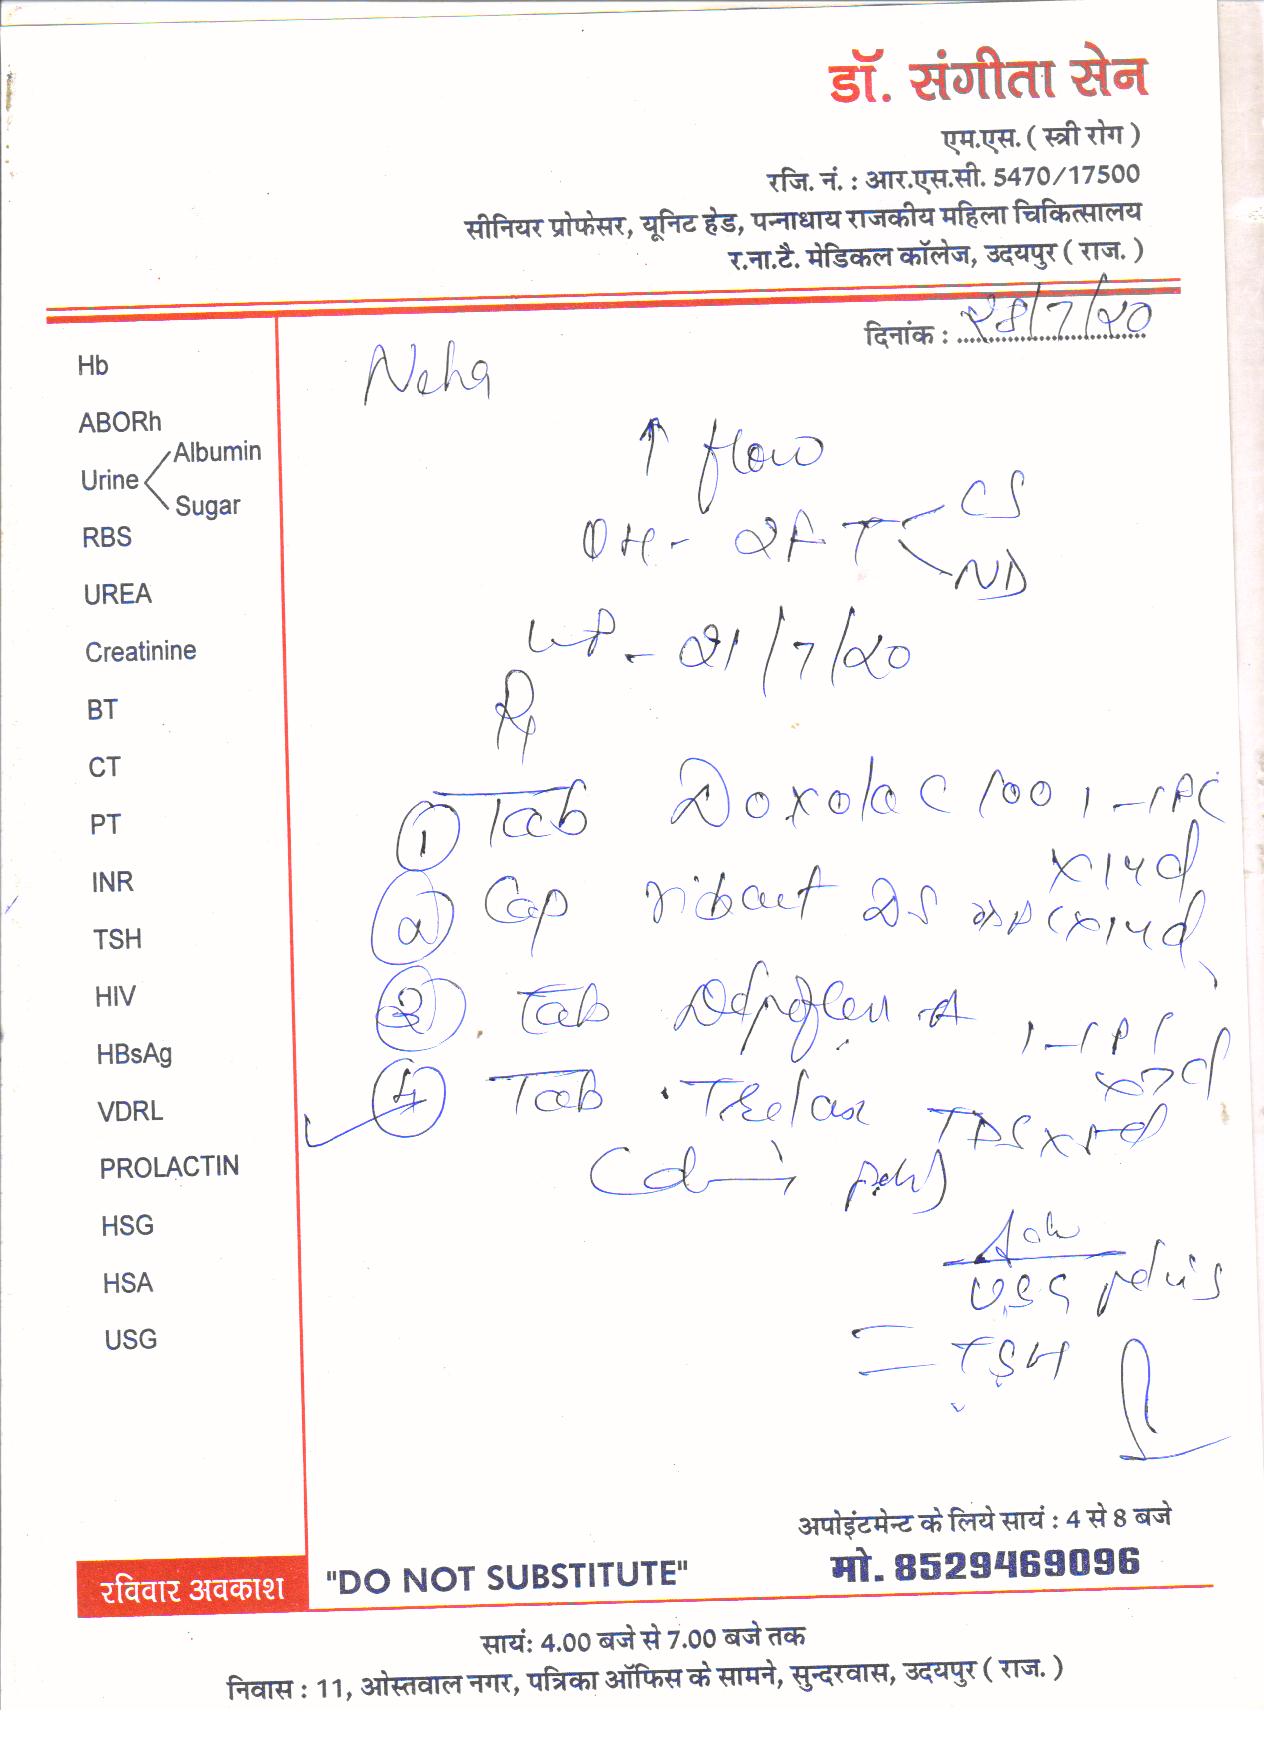 डॉ. संगीता सेन
एम.एस. ( स्त्री रोग )
रजि. नं. : आर.एस.सी. 5470/17500
सीनियर प्रोफेसर, यूनिट हेड, पन्नाधाय राजकीय महिला चिकित्सालय
र.ना.टै. मेडिकल कॉलेज, उदयपुर ( राज. )
दिनांक : 28/7/20
Neha
Hb
ABORh
Urine Albumin
Sugar
RBS
UREA
Creatinine
BT
CT
PT
INR
TSH
HIV
HBsAg
VDRL
PROLACTIN
HSG
HSA
USG
↑ flow
OH - 2FT CS
ND
LMP - 21/7/20
Rx
1 Tab Doxolac 100 1-1 PC
x14d
2 Cap DS x14d
3 Tab 1-1 PC
x7d
4 Tab TDS x5d
Adv
USG pelvis
TSH
अपोइंटमेन्ट के लिये सायं : 4 से 8 बजे
मो. 8529469096
रविवार अवकाश
"DO NOT SUBSTITUTE"
सायं: 4.00 बजे से 7.00 बजे तक
निवास : 11, ओस्तवाल नगर, पत्रिका ऑफिस के सामने, सुन्दरवास, उदयपुर ( राज. )